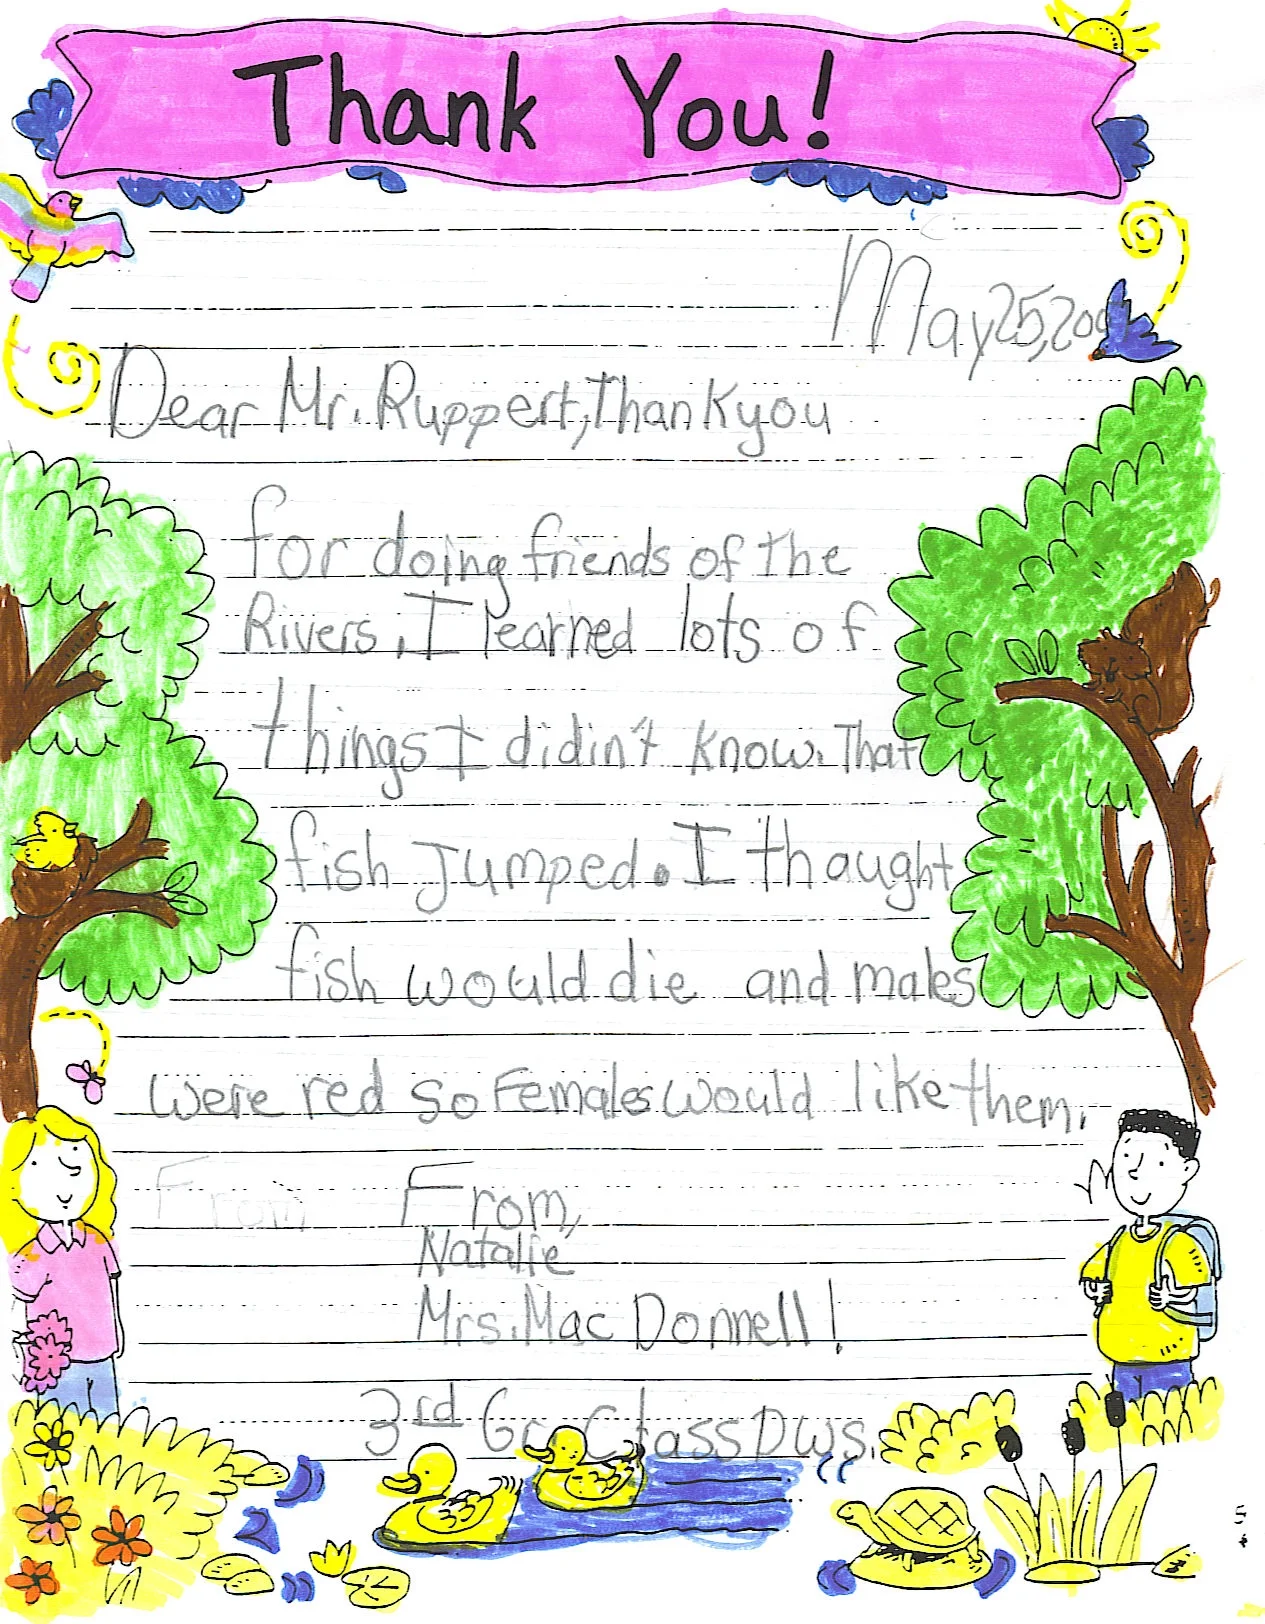 Thank You!
May 25, 200
Dear Mr. Ruppert, Thank you
for doing friends of the
Rivers. I learned lots of
things I didin't know. That
fish Jumped. I thaught
fish would die and males
were red so Females would like them.
From From,
Natalie
Mrs. Mac Donnell!
3rd Gr. Class D.w.s.